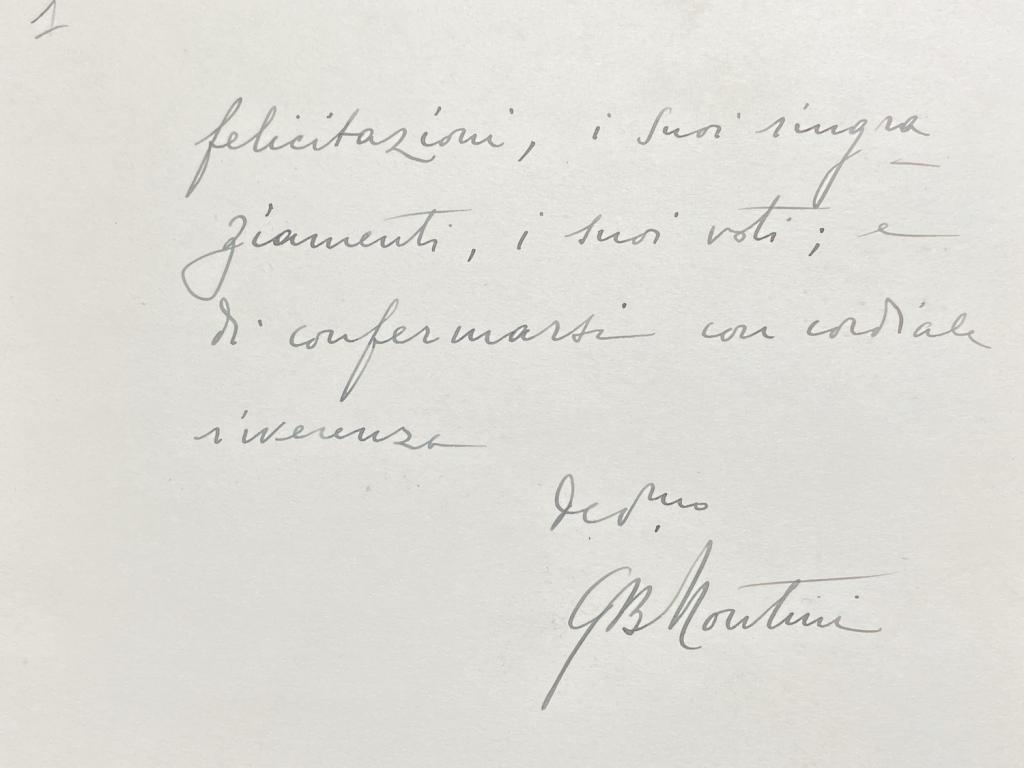 1
felicitazioni, i suoi ringra
ziamenti, i suoi voti; e
di confermarsi con cordiale
riverenza
dev.mo
GBMontini